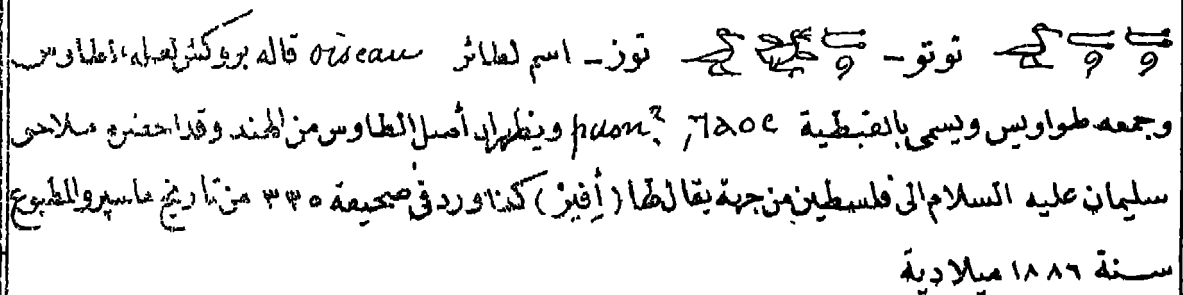 توتو - توز - اسم لطائر oiseau قاله بروكش لعله الطاوس
وجمعه طواويس ويسمى بالقبطية ⲧⲁⲟⲥ, paon? ويظهر ان أصل الطاوس من الهند وقد احضره ملاحى
سليمان عليه السلام الى فلسطين من جهة يقال لها (أفير) كذا ورد فى صحيفة ٣٣٥ من تاريخ ماسپرو المطبوع
سنة ١٨٨٦ ميلادية